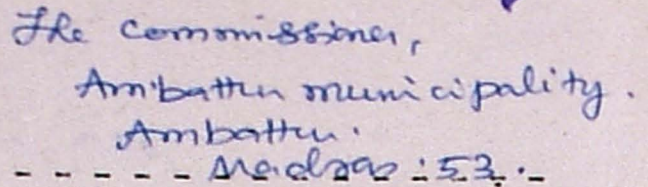 The Commissioner,
Ambattur municipality.
Ambattur.
- - - - - Madras : 53. -